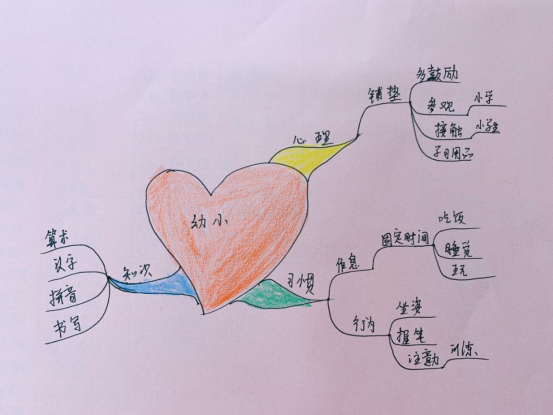 幼小
心理
铺垫
多鼓励
参观
小学
接触
小学生
学习用品
习惯
作息
固定时间
吃饭
睡觉
玩
行为
坐姿
握笔
注意力
训练
知识
算术
认字
拼音
书写